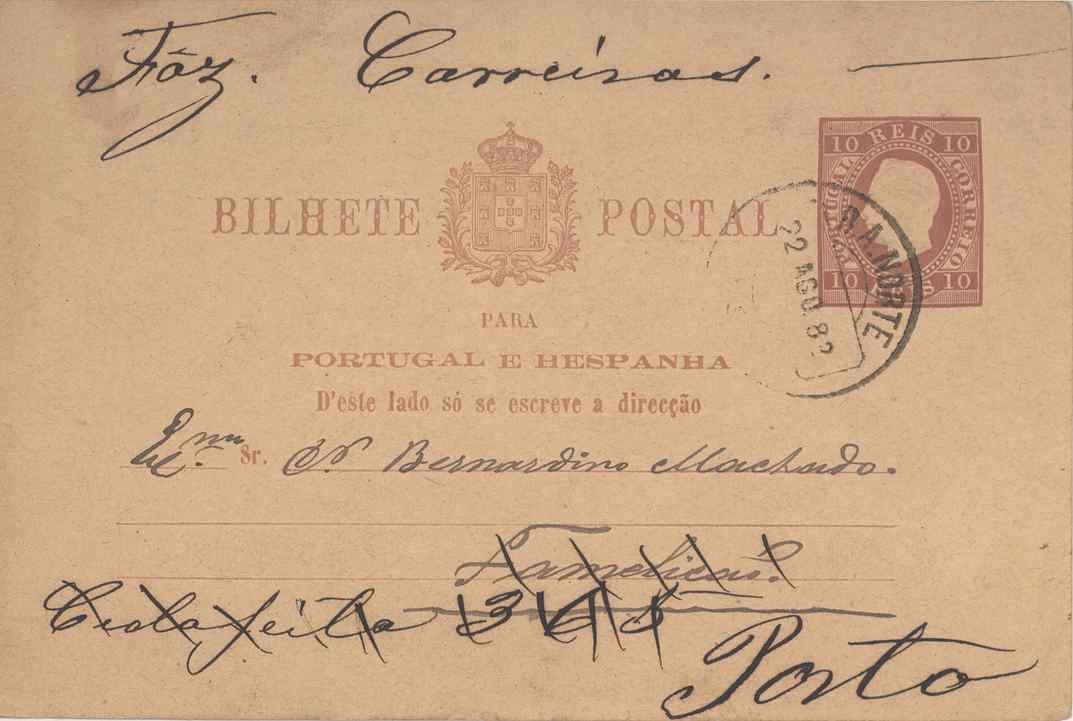 Fôz. Carreiras.
10 REIS 10
PORTUGAL CORREIO
10 REIS 10
BILHETE POSTAL
R.A.NORTE
22 AGO. 82
PARA
PORTUGAL E HESPANHA
D'este lado só se escreve a direcção
Exmo. Sr. Dr Bernardino Machado.
Famelicaõ.
Cedofeita 365
Porto